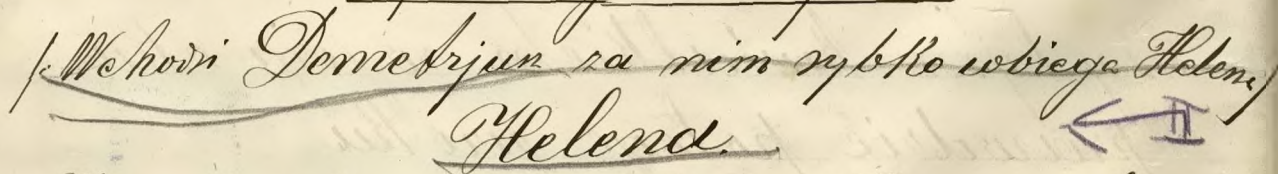 /: Wchodzi Demetrjusz za nim szybko wbiega Helena/
Helena.
← II